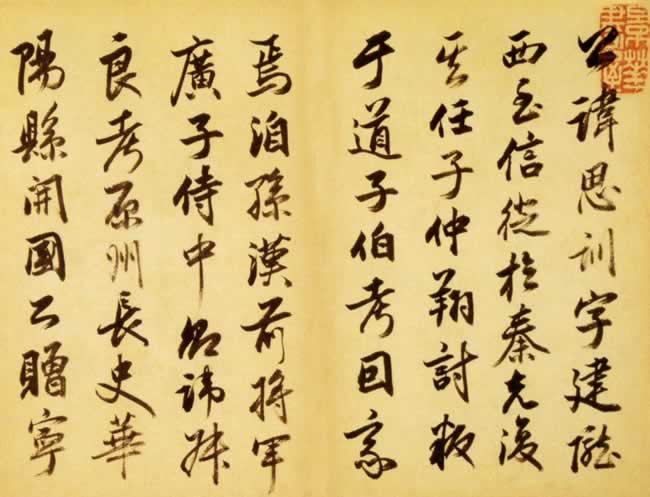 公諱思訓字建隴
西至信徙於秦克復
其任子仲翔討叛
于道子伯考因家
焉洎孫漢前將軍
廣子侍中郎諱叔
良考原州長史華
陽縣開國公贈寧